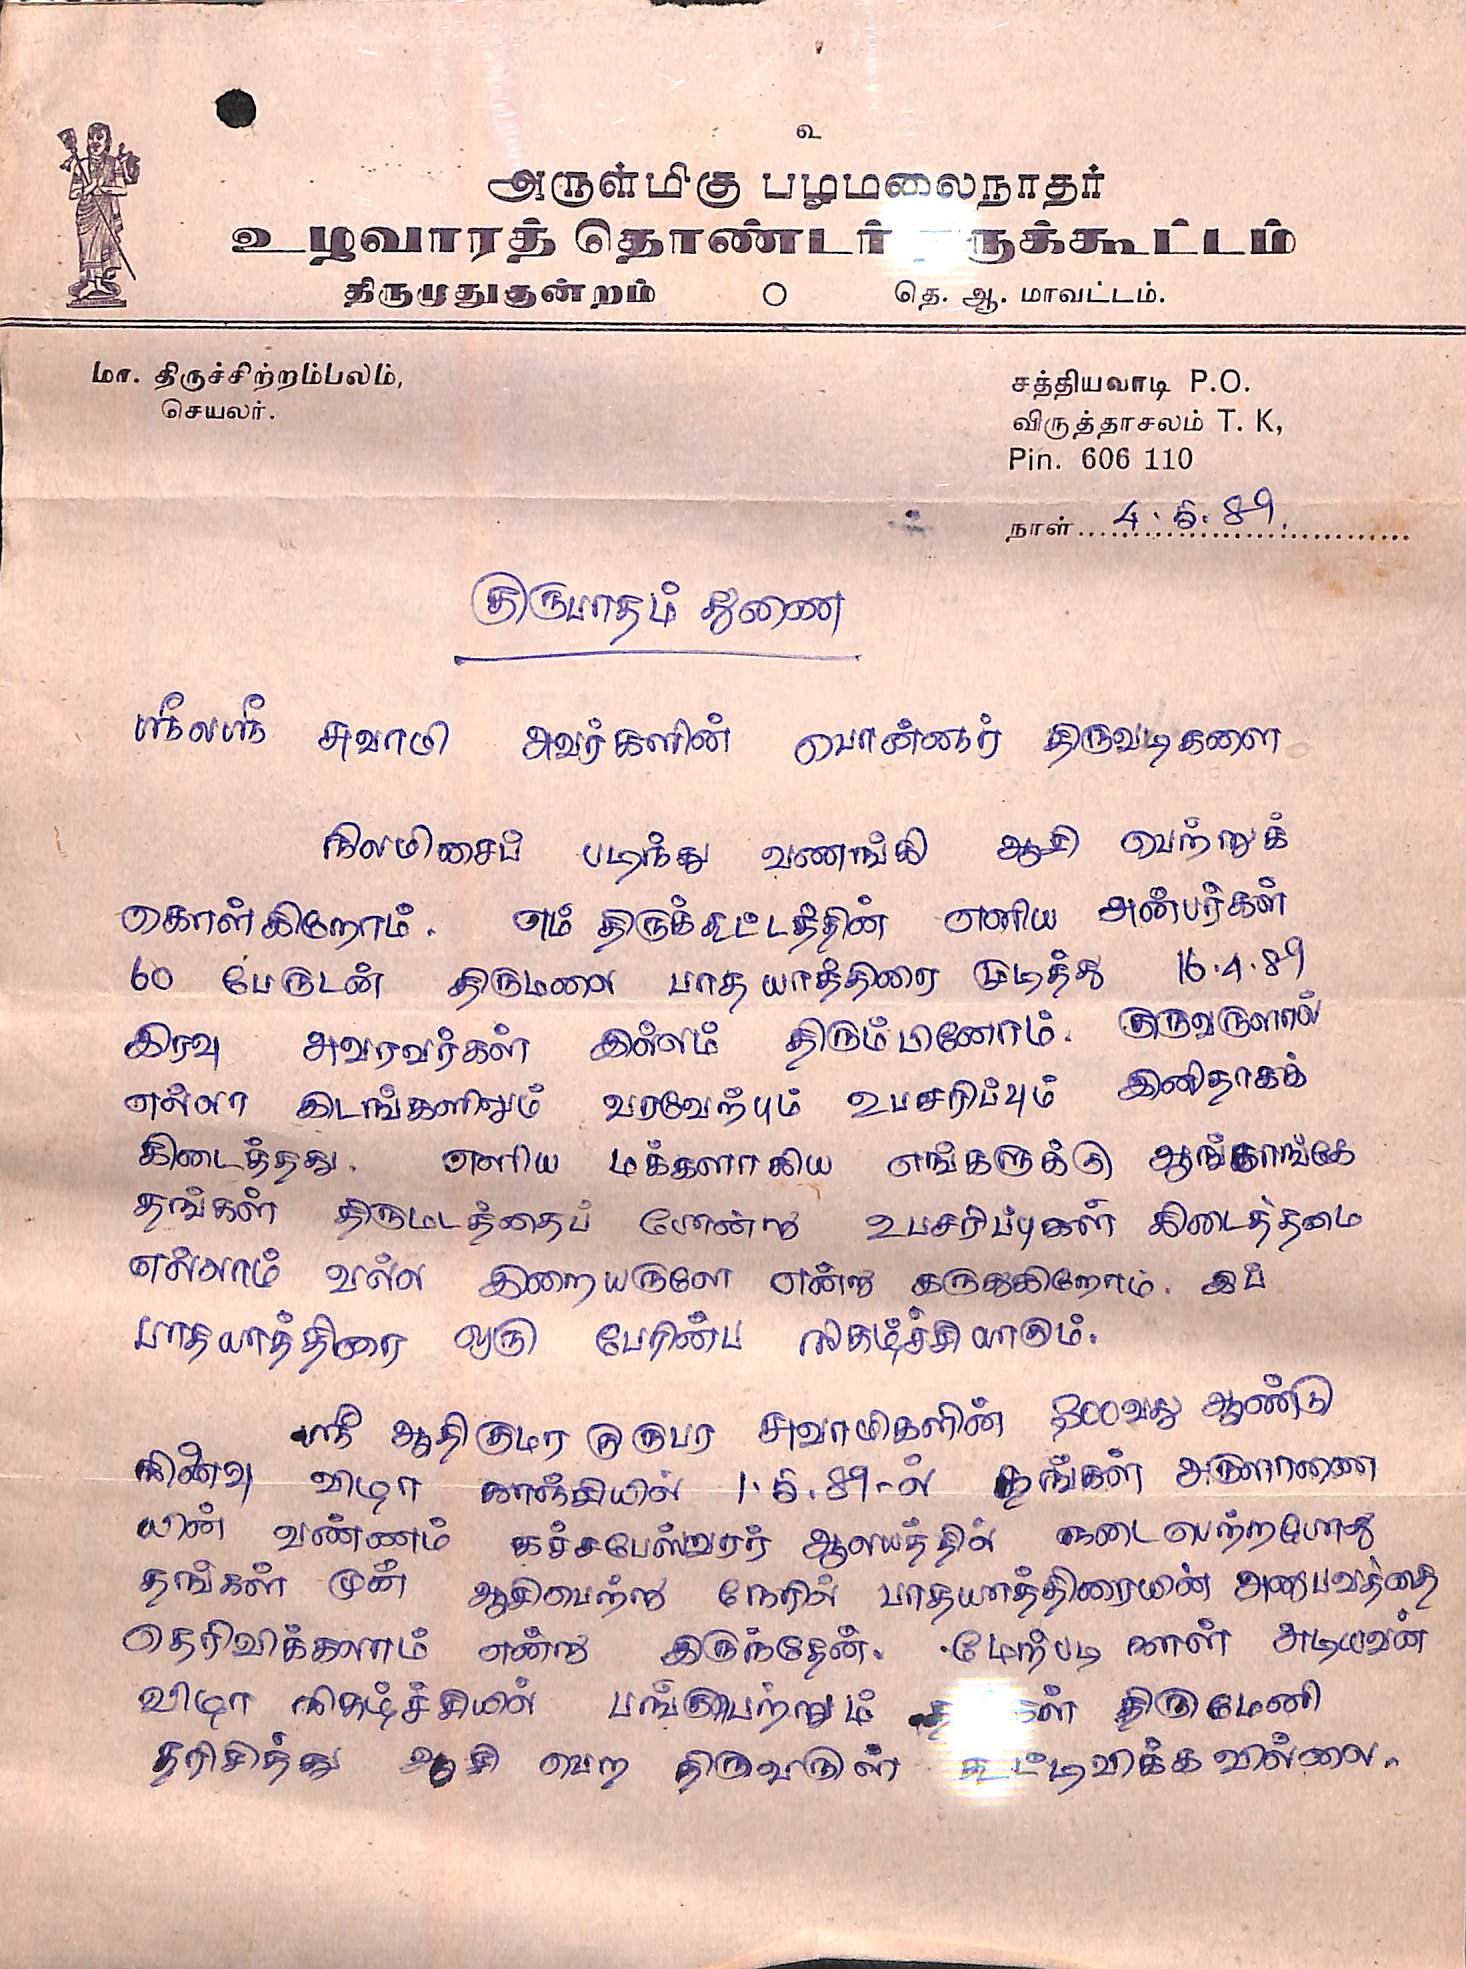 உ
அருள்மிகு பழமலைநாதர்
உழவாரத் தொண்டர் திருக்கூட்டம்
திருமுதுகுன்றம் தெ. ஆ. மாவட்டம்.
மா. திருச்சிற்றம்பலம்,
செயலர்.
சத்தியவாடி P.O.
விருத்தாசலம் T. K,
Pin. 606 110
நாள் 4.5.89.
குருபாதம் துணை
ஸ்ரீலஸ்ரீ சுவாமி அவர்களின் பொன்னார் திருவடிகளை
நிலமிசைப் படிந்து வணங்கி ஆசி பெற்றுக்
கொள்கிறோம். எம் திருக்கூட்டத்தின் எளிய அன்பர்கள்
60 பேருடன் திருமலை பாத யாத்திரை முடித்து 16.4.89
இரவு அவரவர்கள் இல்லம் திரும்பினோம். குருவருளால்
எல்லா இடங்களிலும் வரவேற்பும் உபசரிப்பும் இனிதாகக்
கிடைத்தது. எளிய மக்களாகிய எங்களுக்கு ஆங்காங்கே
தங்கள் திருமடத்தைப் போன்று உபசரிப்புகள் கிடைத்தமை
எல்லாம் வல்ல இறையருளே என்று கருதுகிறோம். இப்
பாதயாத்திரை ஒரு பேரின்ப நிகழ்ச்சியாகும்.
ஸ்ரீ ஆதிகுமர குருபர சுவாமிகளின் 300வது ஆண்டு
நினைவு விழா காஞ்சியில் 1.5.89-ல் தங்கள் அருளாணை
யின் வண்ணம் கச்சபேஸ்வரர் ஆலயத்தில் நடைபெற்றபோது
தங்கள் முன் ஆசிபெற்று நேரில் பாதயாத்திரையின் அனுபவத்தை
தெரிவிக்கலாம் என்று இருந்தேன். மேற்படி நாள் அடியவன்
விழா நிகழ்ச்சியில் பங்குபெற்றும் தங்கள் திருமேனி
தரிசித்து ஆசி பெற திருவருள் கூட்டுவிக்கவில்லை.